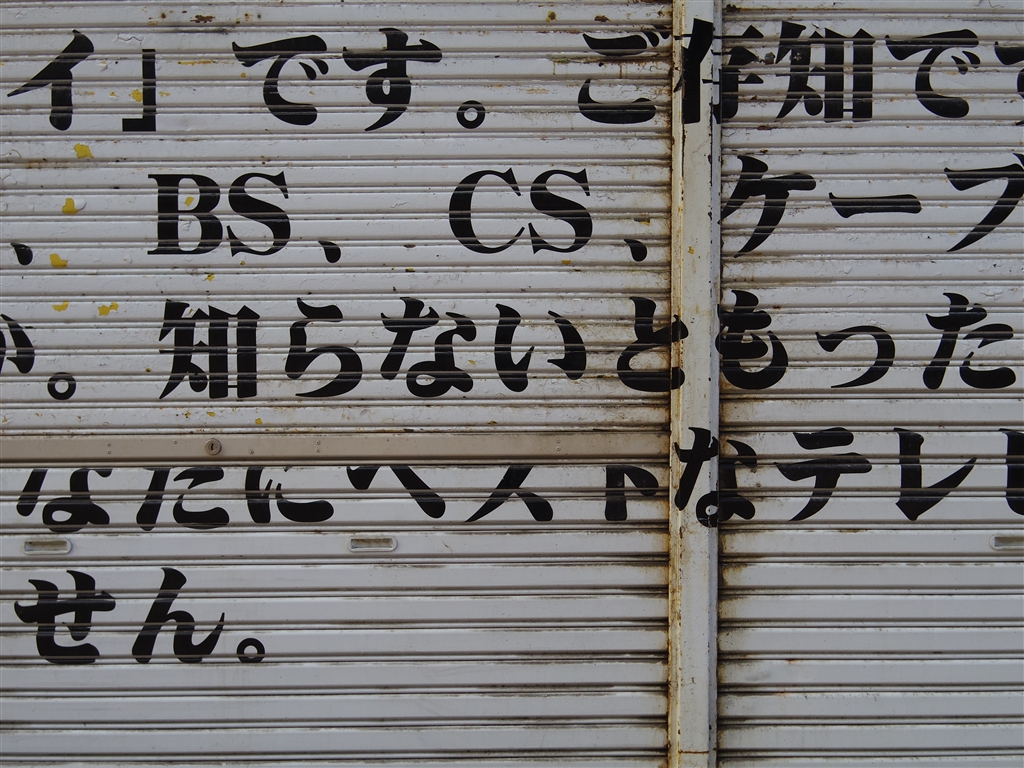 イ」です。ご存知です
、BS、CS、ケーブ
か。知らないともった
なたにベストなテレビ
せん。